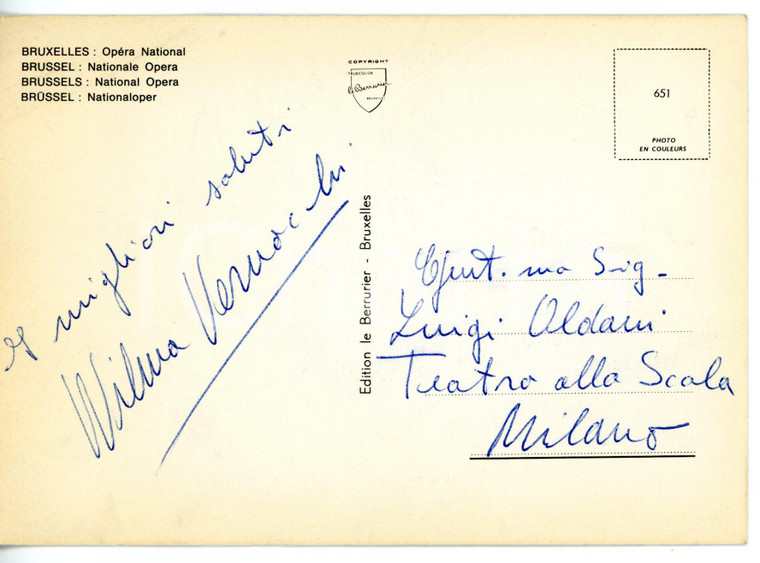 BRUXELLES : Opéra National
BRUSSEL : Nationale Opera
BRUSSELS : National Opera
BRÜSSEL : Nationaloper
COPYRIGHT
le Berrurier
BRUXELLES
651
PHOTO
EN COULEURS
Edition le Berrurier - Bruxelles
migliori saluti
Wilma Vernocchi
Gent.mo Sig.
Luigi Oldani
Teatro alla Scala
Milano